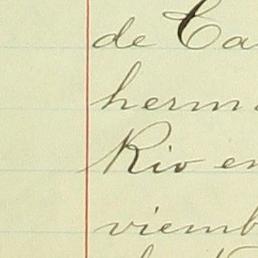 de Ca
herm
Rio en
viemb